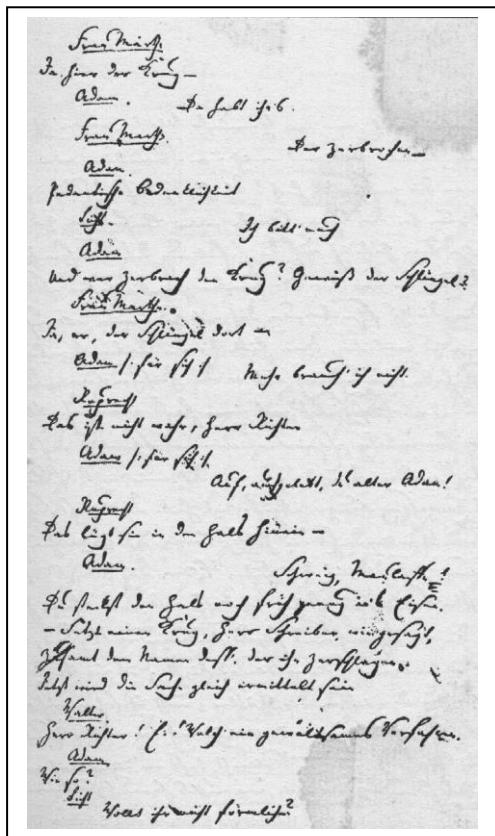 Frau Marthe.
Ja hier der Krug –
Adam.
Da habt ihrs.
Frau Marthe.
Der zerbrochen –
Adam.
Pedantische Bedenklichkeit
Licht.
Ich bitt' euch
Adam
Und wer zerbrach den Krug? Gewiß der Schlingel?
Frau Marthe.
Ja, er, der Schlingel dort –
Adam /. für sich ./ Mehr brauch' ich nicht.
Ruprecht
Das ist nicht wahr, Herr Richter
Adam /. für sich ./
Auf, aufgelebt, du alter Adam!
Ruprecht
Das lügt sie in den Hals hinein –
Adam.
Schweig, Maulaffe!
Du steckst den Hals noch früh genug ins Eisen.
– Setzt einen Krug, Herr Schreiber, wie gesagt,
Zusamt dem Namen dess', der ihn zerschlagen.
Jetzt wird die Sache gleich ermittelt sein
Walter.
Herr Richter! Ei! Welch ein gewaltsames Verfahren.
Adam.
Wie so?
Licht
Wollt ihr nicht förmlich?